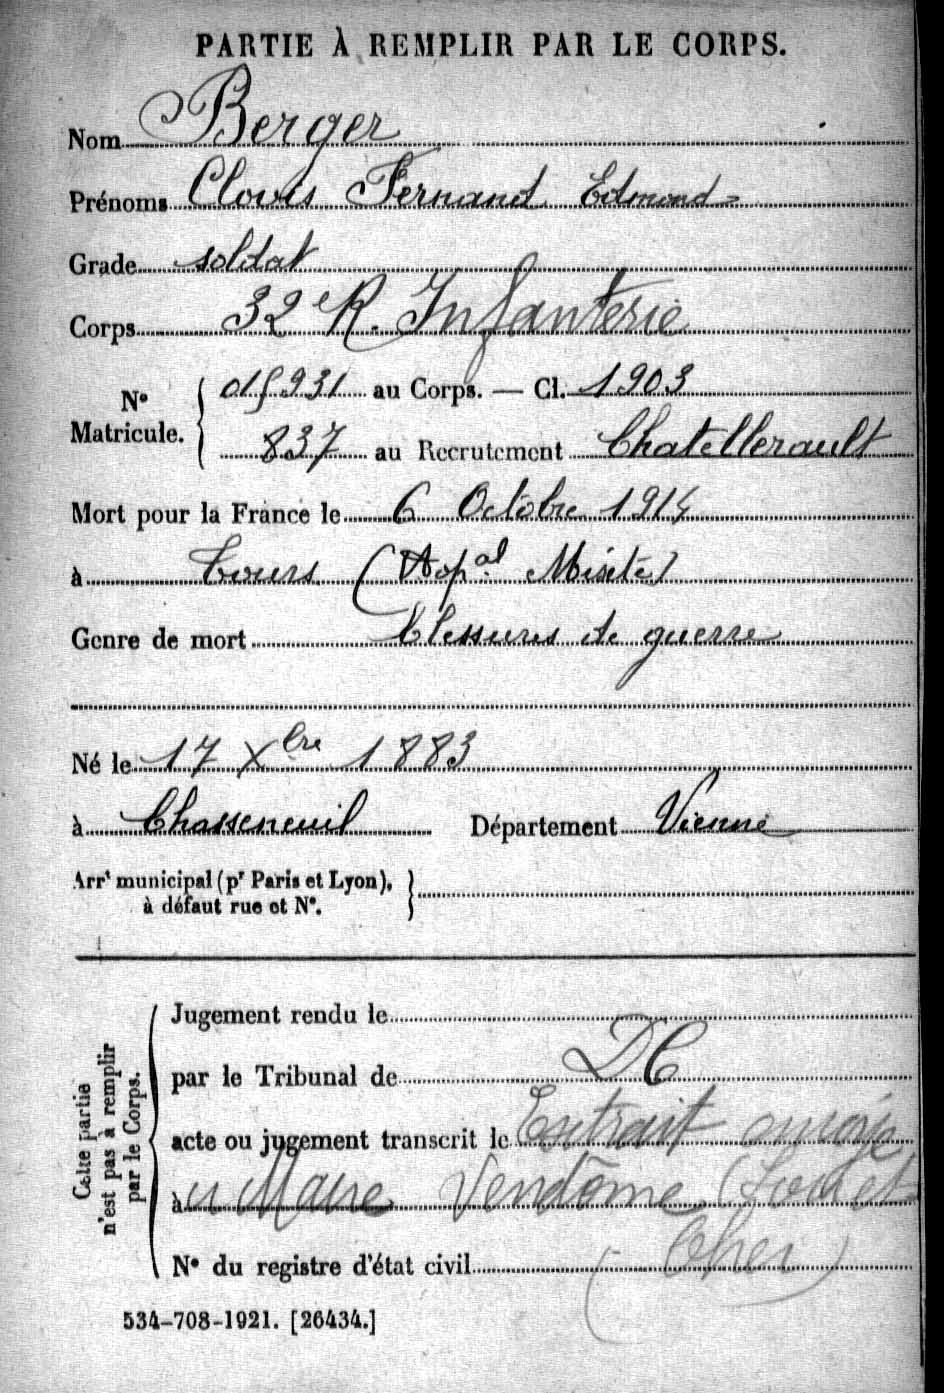 PARTIE À REMPLIR PAR LE CORPS.
Nom Berger
Prénoms Clovis Fernand Edmond
Grade soldat
Corps 32e R. Infanterie
N° Matricule. { 015931 au Corps. — Cl. 1903
837 au Recrutement Chatellerault
Mort pour la France le 6 Octobre 1914
à Tours (Hopal Mixte)
Genre de mort blessures de guerre
Né le 17 Xbre 1883
à Chasseneuil Département Vienne
Arrt municipal (pr Paris et Lyon), }
à défaut rue et N°.
Cette partie
n'est pas à remplir
par le Corps.
Jugement rendu le
par le Tribunal de DC
acte ou jugement transcrit le Extrait envoyé
à au Maire Vendôme (Loir et
N° du registre d'état civil Cher)
534-708-1921. [26434.]